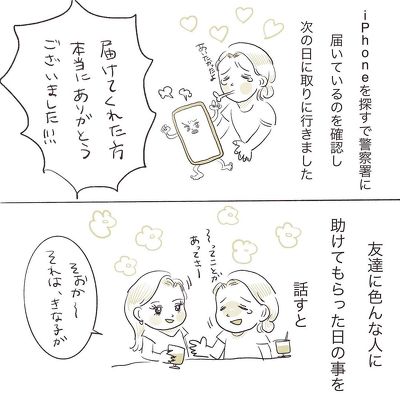 iPhoneを探すで警察署に
届いているのを確認し
次の日に取りに行きました
あいたかったよ
届けてくれた方
本当にありがとう
ございました!!!
友達に色んな人に
助けてもらった日の事を
話すと
〜ってことが
あってさー
そおか〜
それは、きな子が